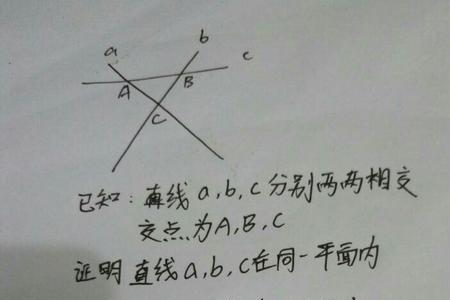 a
b
c
A
B
C
已知：直线a,b,c分别两两相交
交点为A,B,C
证明直线a,b,c在同一平面内